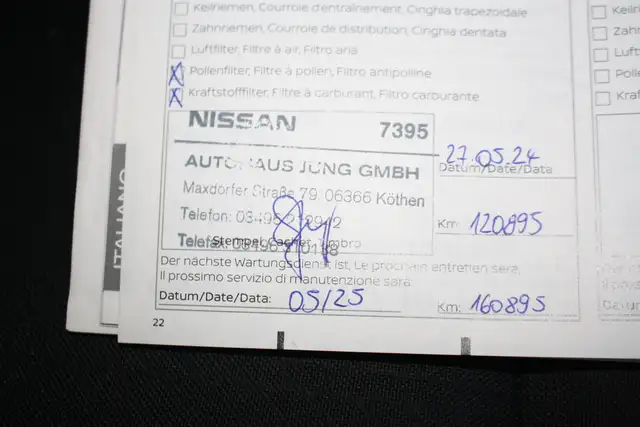 Keilriemen, Courroie d'entraînement, Cinghia trapezoidale
Zahnriemen, Courroie de distribution, Cinghia dentata
Luftfilter, Filtre à air, Filtro aria
X Pollenfilter, Filtre à pollen, Filtro antipolline
X Kraftstofffilter, Filtre à carburant, Filtro carburante
NISSAN 7395
AUTOHAUS JUNG GMBH
Maxdorfer Straße 79, 06366 Köthen
Telefon: 03496
Telefax: 03496
Stempel, Cachet, Timbro
27.05.24
Datum/Date/Data
Km: 120895
Der nächste Wartungsdienst ist, Le prochain entretien sera,
Il prossimo servizio di manutenzione sarà:
Datum/Date/Data: 05/25
Km: 160895
22
ITALIANO
Keilri
Zahn
Luft
Poll
Kraf